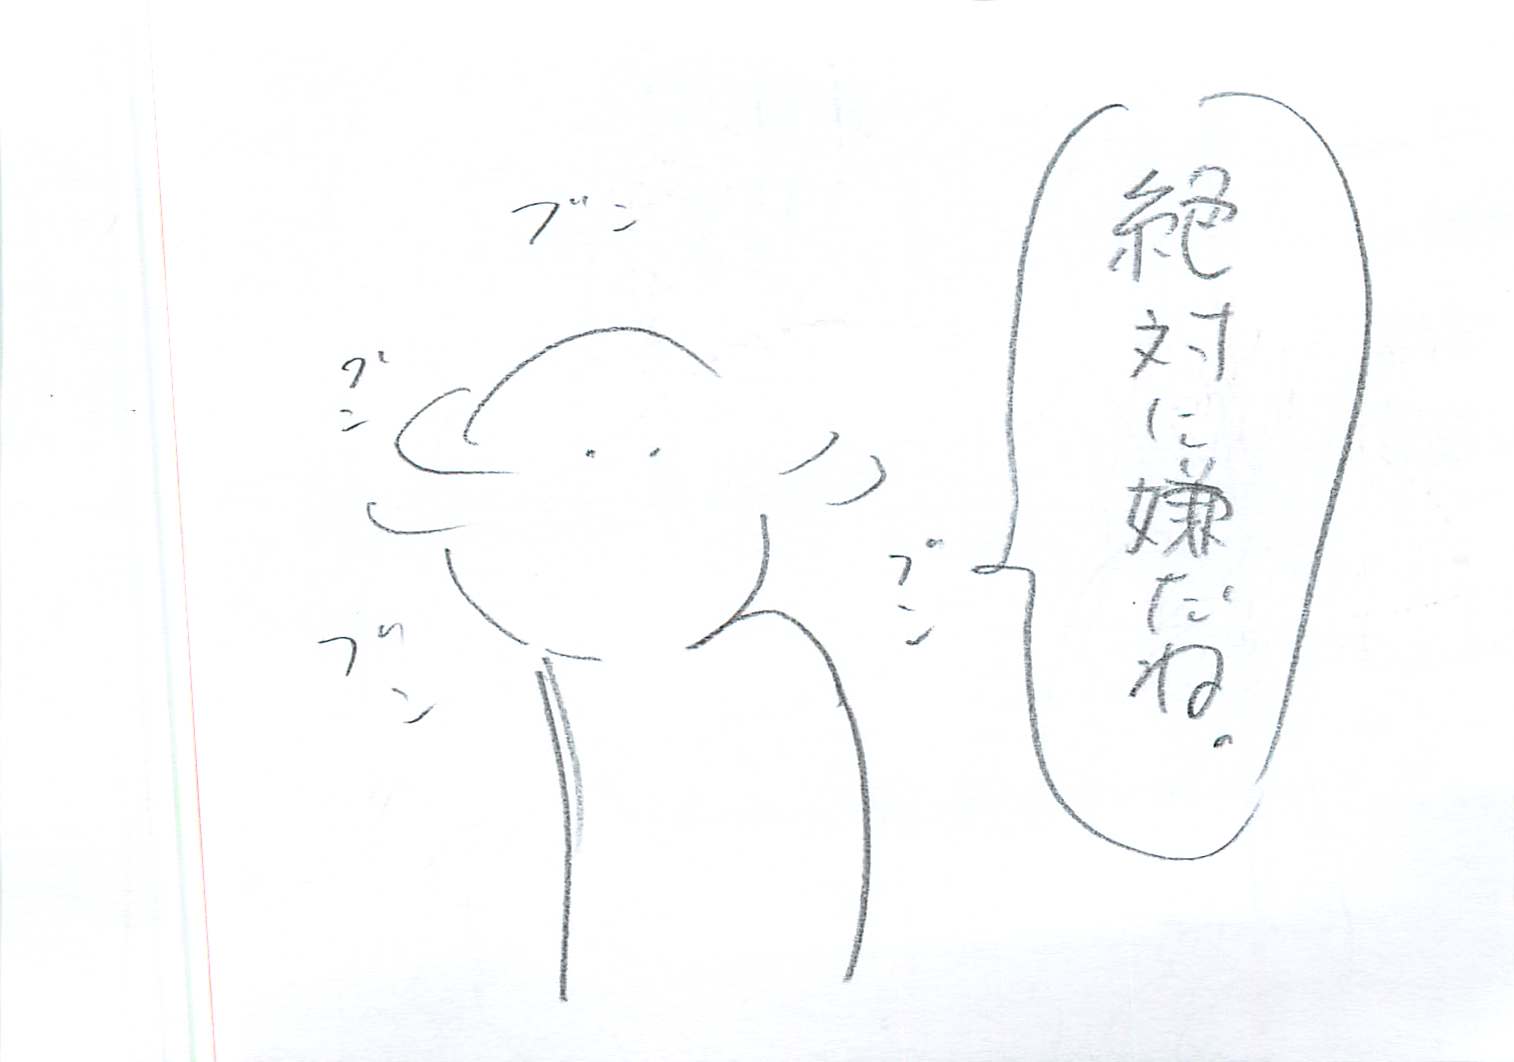 絶対に嫌だね。
ブン
ブン
ブン
ブン